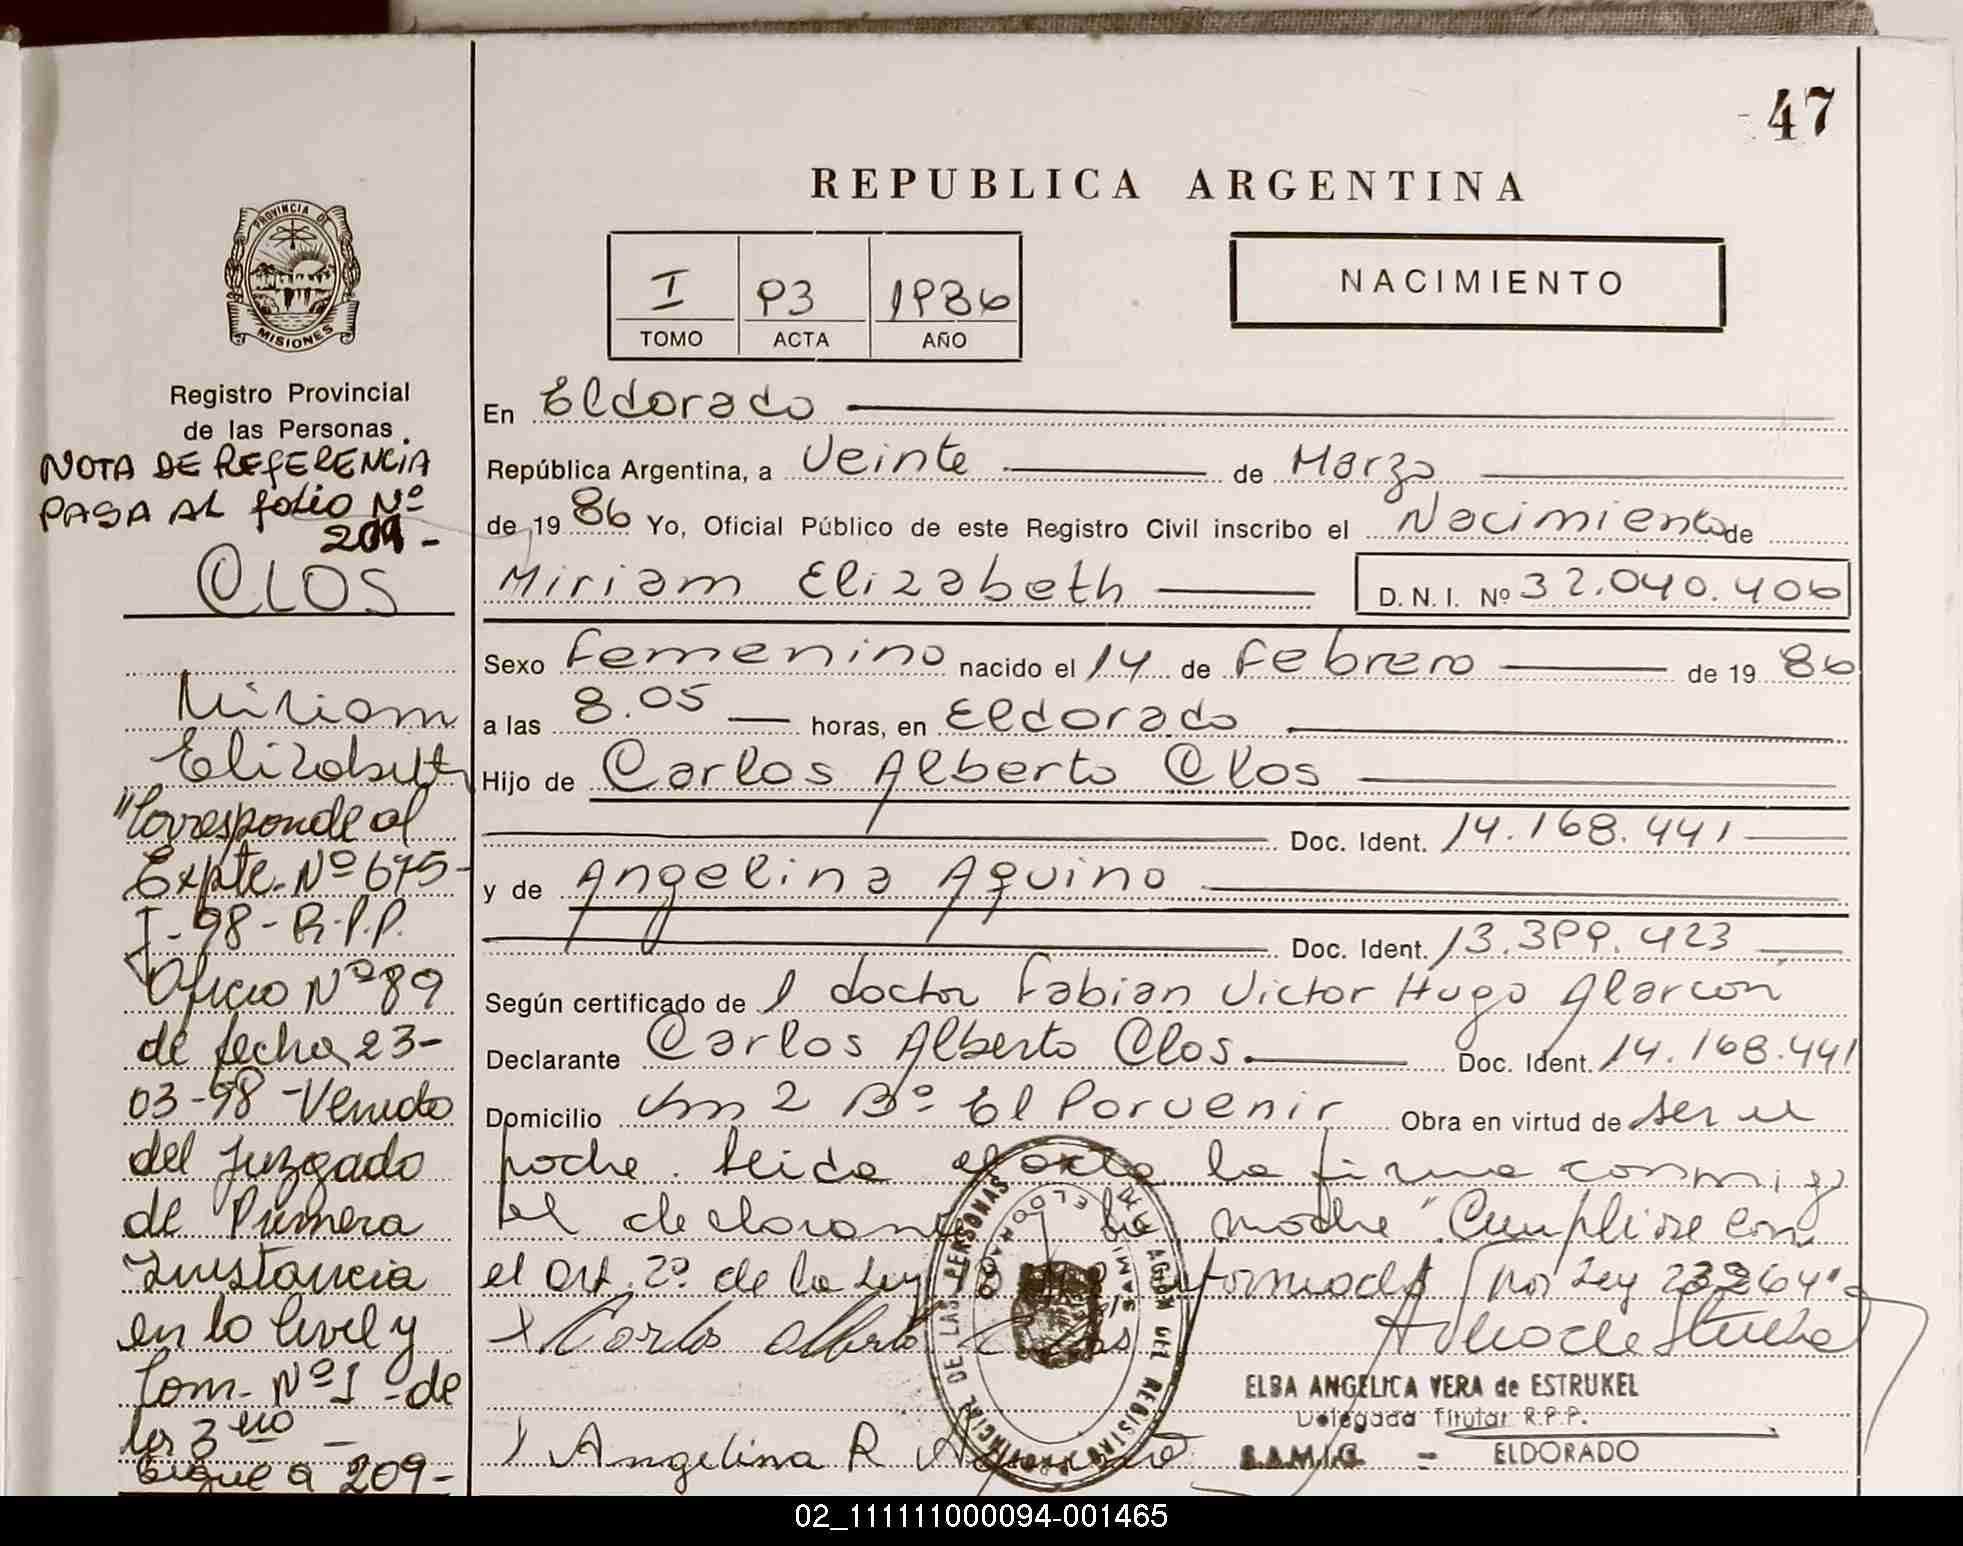 47
REPUBLICA ARGENTINA
PROVINCIA DE
MISIONES
I 93 1986
TOMO ACTA AÑO
NACIMIENTO
Registro Provincial
de las Personas
NOTA DE REFERENCIA
PASA AL folio Nº
209-
CLOS
Miriam
Elizabeth
"Corresponde al
Expte. Nº 675-
I-98-R.P.P.
Oficio Nº 89
de fecha 23-
03-98 - Venido
del Juzgado
de Primera
Instancia
en lo Civil y
Com. Nº 1 - de
los 3
sigue a 209-
En Eldorado
República Argentina, a Veinte de Marzo
de 1986 Yo, Oficial Público de este Registro Civil inscribo el Nacimiento de
Miriam Elizabeth D.N.I. Nº 32.040.406
Sexo Femenino nacido el 14 de Febrero de 1986
a las 8.05 horas, en Eldorado
Hijo de Carlos Alberto Clos
Doc. Ident. 14.168.441
y de Angelina Aquino
Doc. Ident. 13.399.423
Según certificado de l doctor Fabian Victor Hugo Alarcón
Declarante Carlos Alberto Clos. Doc. Ident. 14.168.441
Domicilio Km 2 Bº El Porvenir Obra en virtud de ser el
padre. Leída el acta la firma conmigo
el declarante la madre "Cumplise con
el Art. 2º de la Ley por Ley 23264"
Carlos Alberto Clos
ELBA ANGELICA VERA de ESTRUKEL
Delegada Titular R.P.P.
S.A.M.I.C. - ELDORADO
Angelina R Aquino
DEL REGISTRO PROVINCIAL DE LAS PERSONAS
ELDORADO
02_111111000094-001465